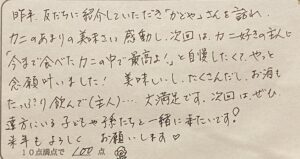 昨年、友だちに紹介していただき"かどや"さんを訪れ、
カニのあまりの美味さに感動し、次回は、カニ好きの主人に
「今まで食べたカニの中で最高よ!」と自慢したくて、やっと
念願叶いました! 美味しいし、たくさんだし、お酒も
たっぷり飲んで(主人)… 大満足です。次回は、ぜひ
遠方にいる子どもや孫たちと一緒に来たいです!
来年もよろしく お願いします♡
10点満点で 100点